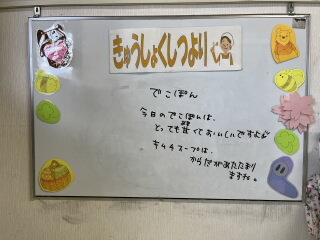 きゅうしょくしつより
でこぽん
今日のでこぽんは、
とっても甘くておいしいですよ♪
キムチスープは、
からだがあたたまり
ますね。